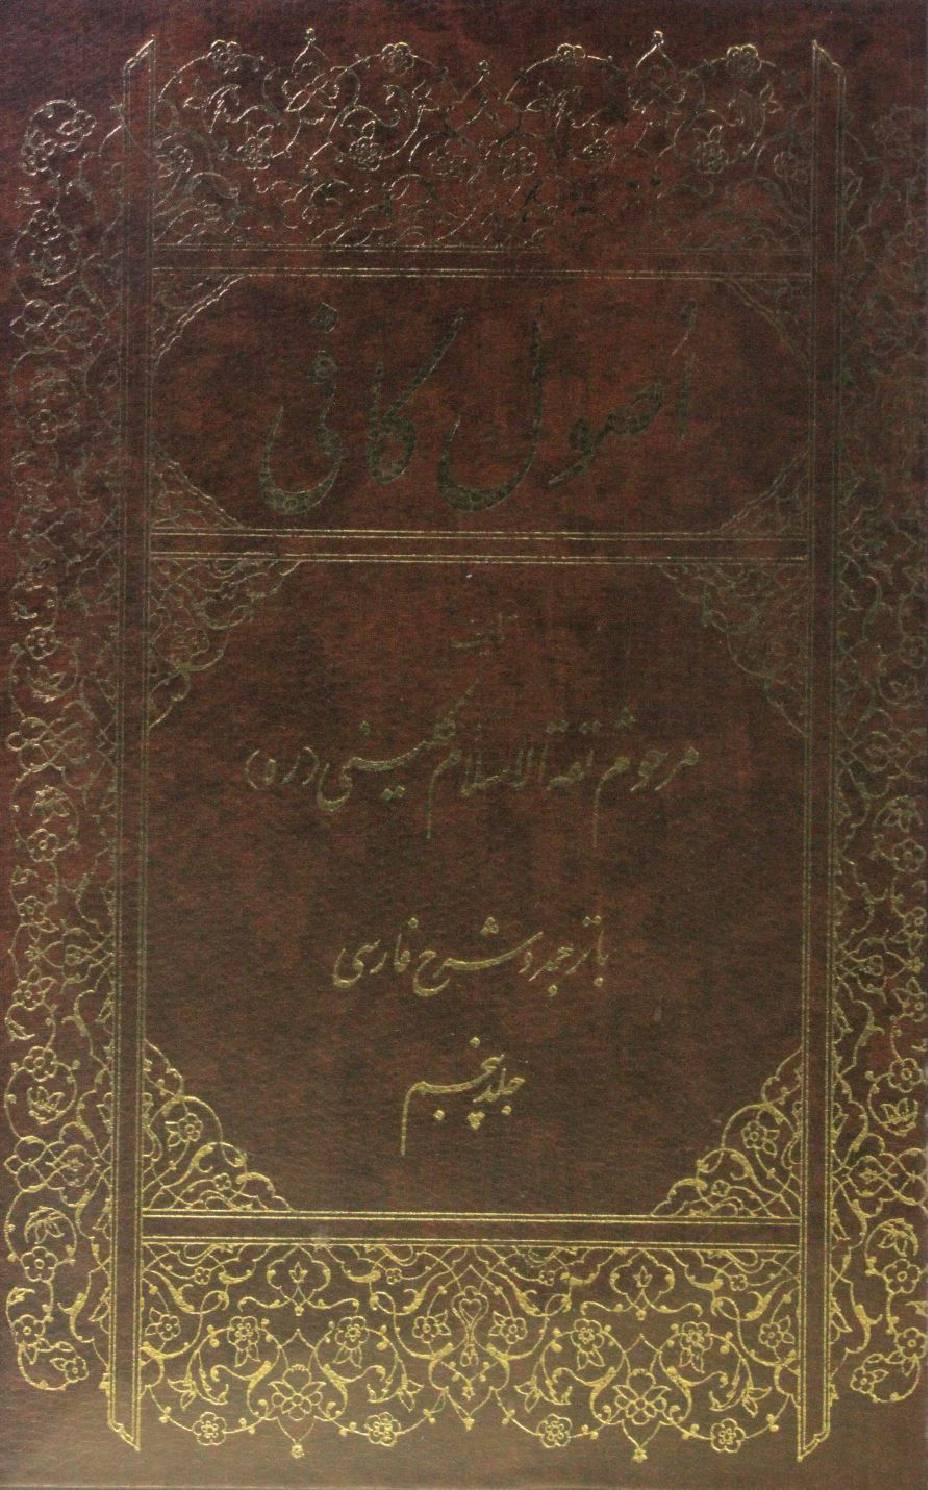 اصول کافی
تألیف
مرحوم ثقة الاسلام کلینی (ره)
با ترجمه و شرح فارسی
جلد پنجم